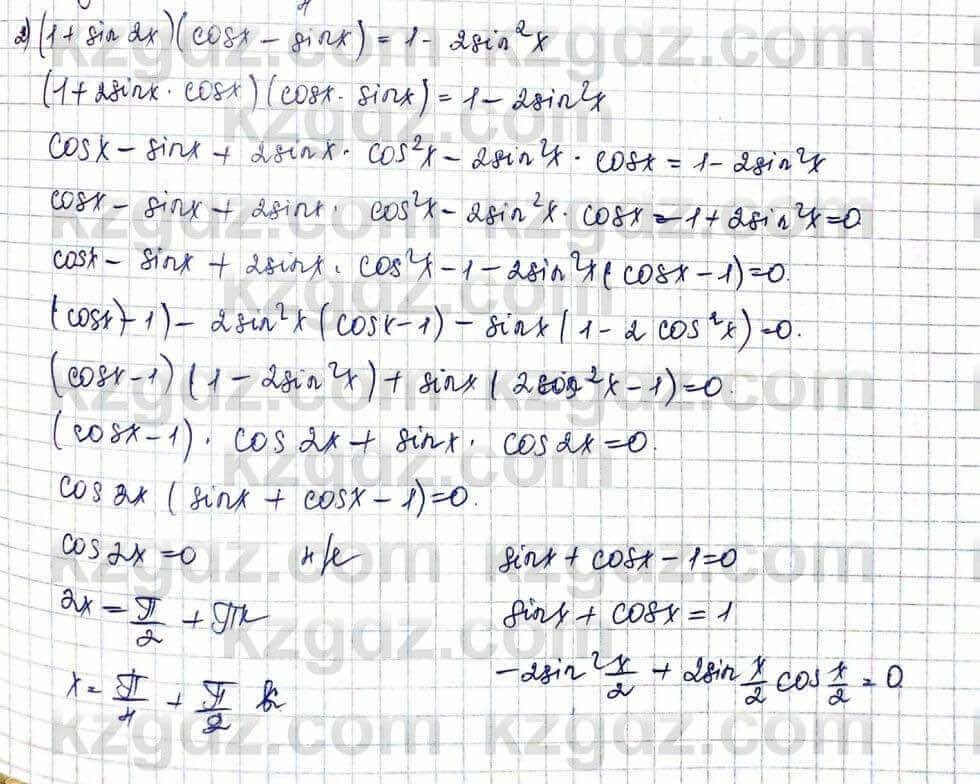 2) (1 + sin 2x)(cosx - sinx) = 1 - 2sin²x
(1 + 2sinx · cosx)(cosx · sinx) = 1 - 2sin²x
cosx - sinx + 2sinx · cos²x - 2sin²x · cosx = 1 - 2sin²x
cosx - sinx + 2sinx · cos²x - 2sin²x · cosx - 1 + 2sin²x = 0
cosx - sinx + 2sinx · cos²x - 1 - 2sin²x (cosx - 1) = 0.
(cosx) - 1) - 2sin²x (cosx - 1) - sinx (1 - 2 cos²x) = 0.
(cosx - 1) (1 - 2sin²x) + sinx (2cos²x - 1) = 0.
(cosx - 1) · cos 2x + sinx · cos 2x = 0.
cos 2x (sinx + cosx - 1) = 0.
cos 2x = 0 sinx + cosx - 1 = 0
2x = π/2 + πk sinx + cosx = 1
x = π/4 + π/2 k -2sin² x/2 + 2sin x/2 cos x/2 = 0
kzgdz.com